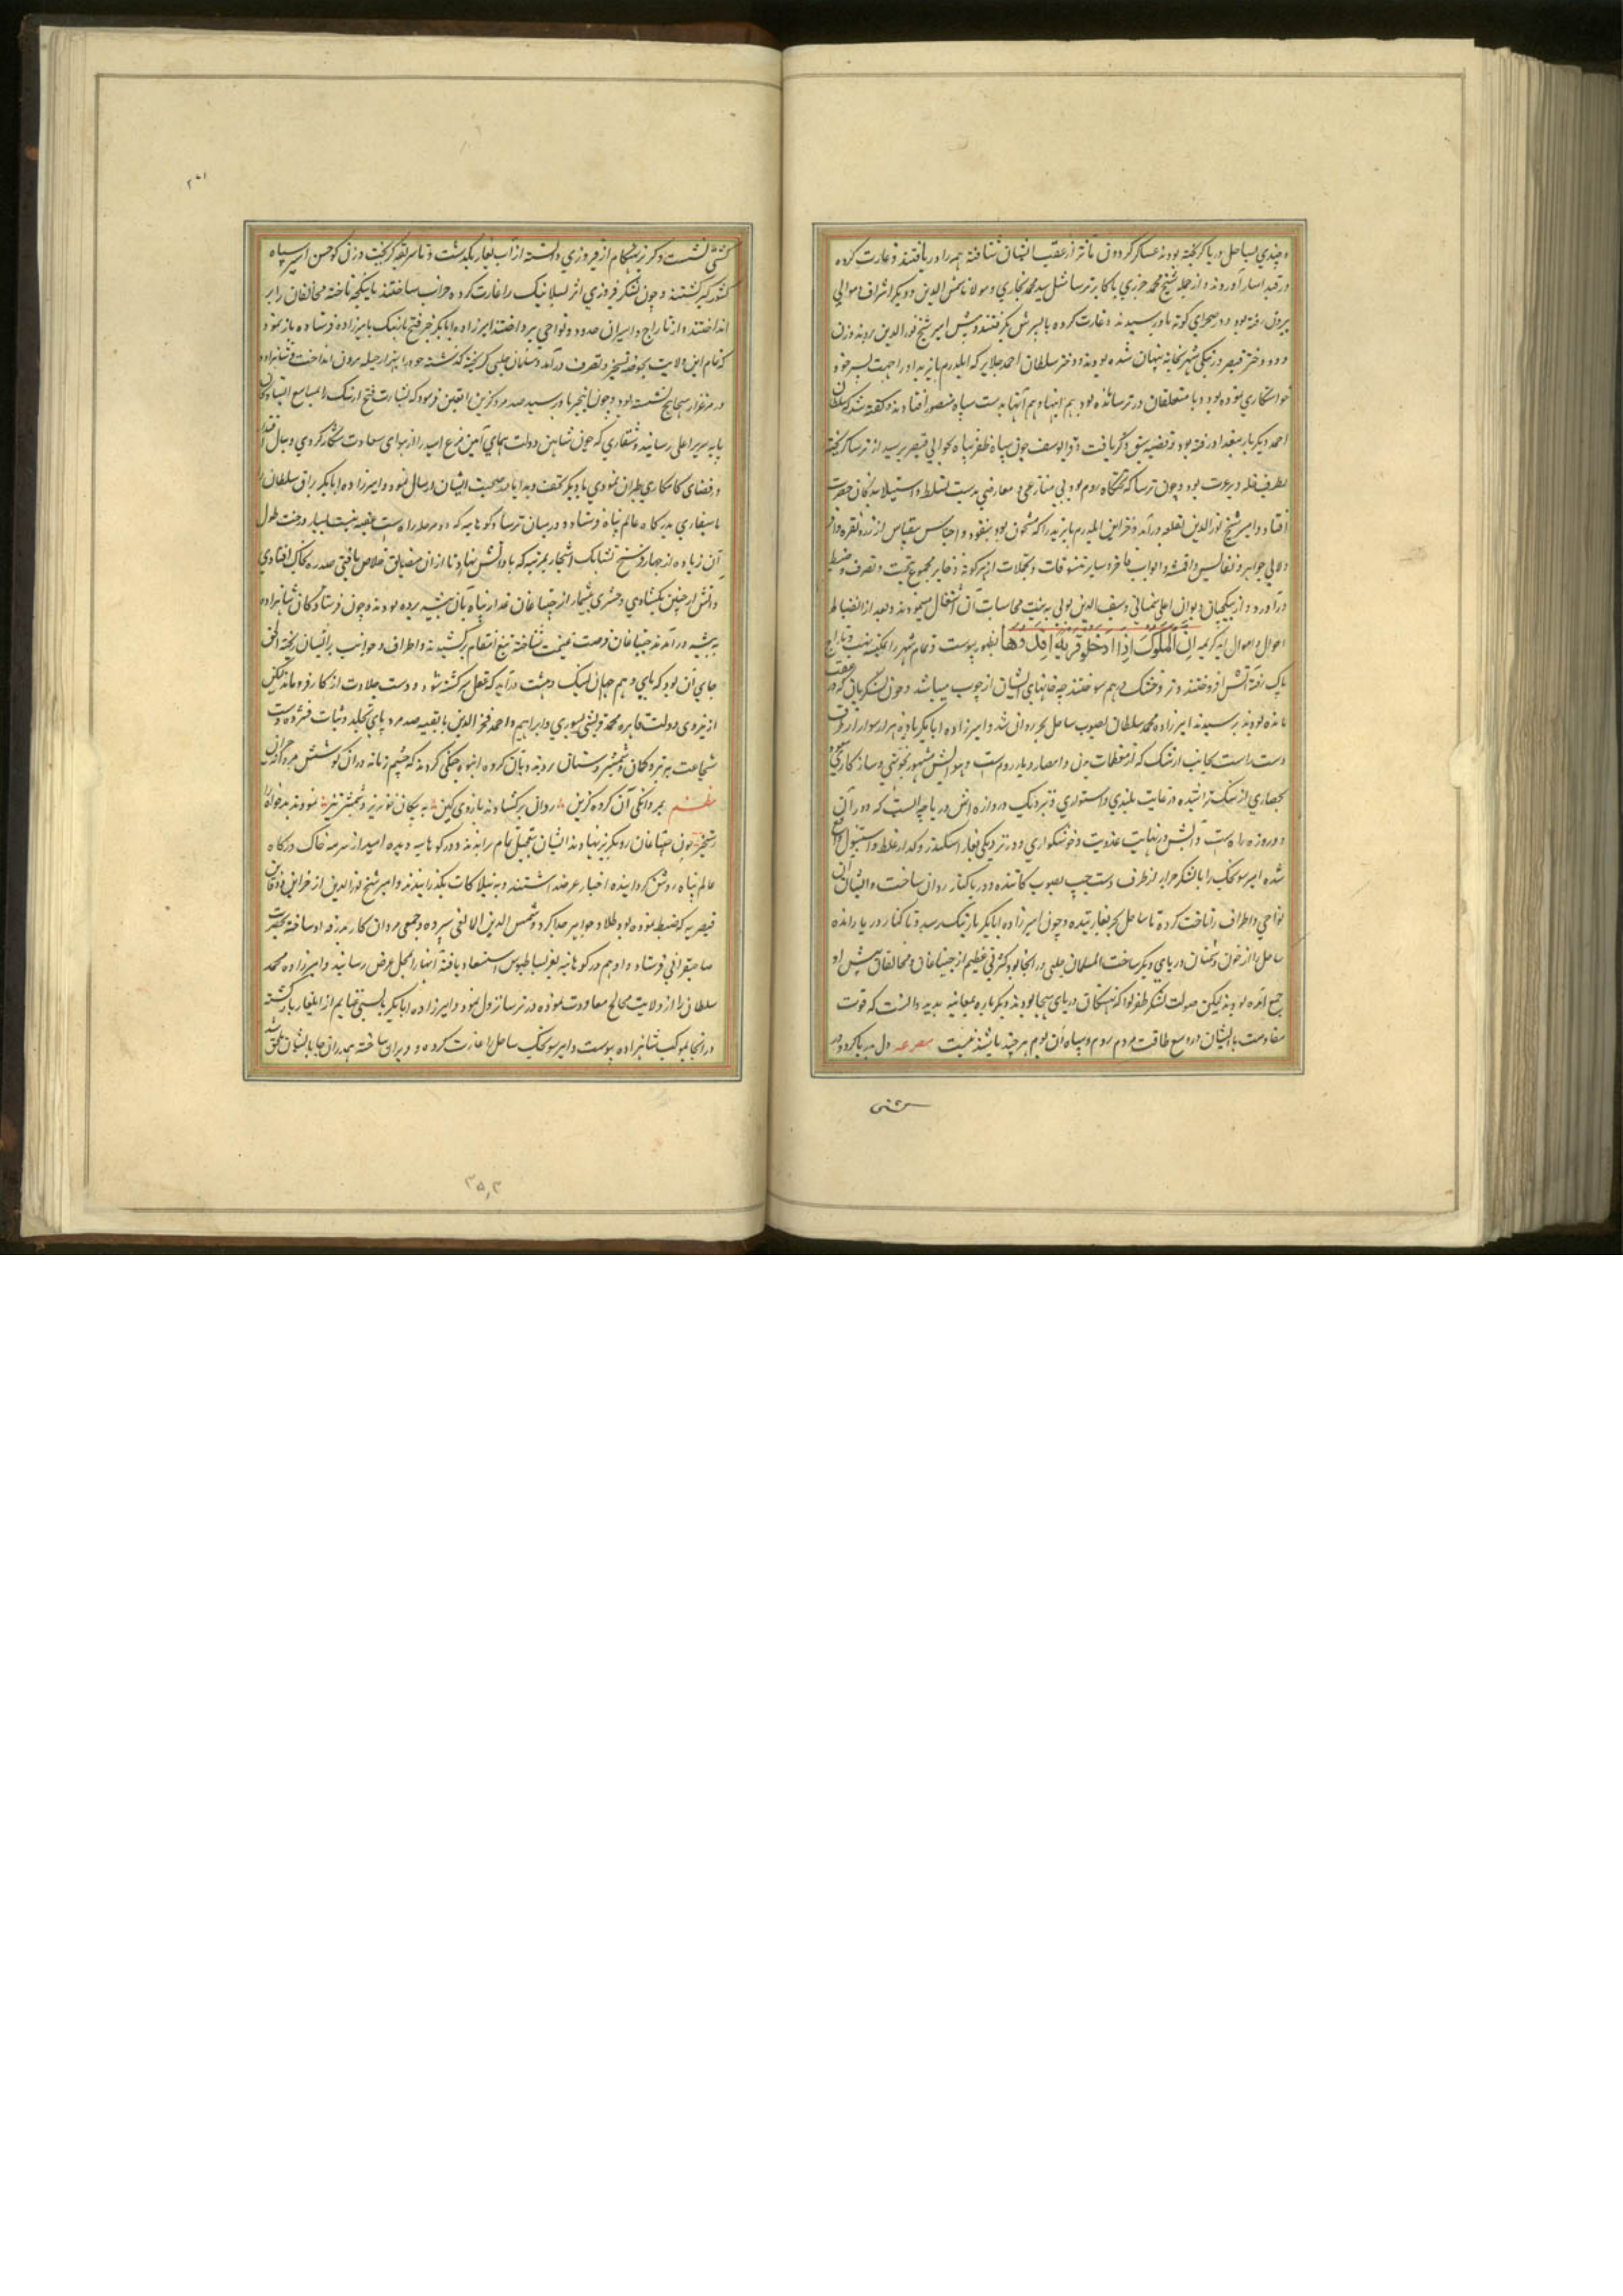 و چندی بساحل دریا گریخته بودند عساکر گردون مآثر از عقب ایشان شتافته همه را دریافتند و غارت کرده
در قید اسار آوردند و از جمله شیخ محمد جزری با اکابر برسا مثل سید محمد بخاری و مولانا شمس الدین و دیگر اشراف و موالی
بیرون رفته بود و در صحرای کوته باو رسیدند و غارت کرده با پسرش بگرفتند و پیش امیر شیخ نور الدین بردند و زن
و دو دختر قیصر در نیکی شهر بخانه پنهان شده بودند و دختر سلطان احمد جلایر که ایلدرم بایزید او را جهت پسر خود
خواستگاری نموده بود و با متعلقان در برسا مانده بود هم اینها و هم آنها بدست سپاه منصور افتادند و گفته شد که سلطان
احمد دیگر بار ببغداد رفته بود و قرا یوسف چون سپاه ظفر پناه بحوالی قیصریه رسید از برسا گریخته
بطرف حله در رفت بود و چون برسا که تختگاه روم بود بی منازعی و معارضی بدست تسلط و استیلا بندگان حضرت
افتاد و امیر شیخ نور الدین بقلعه درآمد و خزاین ایلدرم بایزید را که مشحون بود بنقود و اجناس بیقیاس از زر و نقره و
و لآلی جواهر و نفایس و اقمشه و اثواب فاخره و سایر تنسوقات و تجملات از هر گونه ذخایر مجموع بتحت تصرف و ضبط
درآورد و از بیتکچیان دیوان اعلی شمنانی و سیف الدین تونی به ثبت محاسبات آن اشتغال مینمودند و بعد از انضباط
احوال و اموال آیه کریمه ان الملوک اذا دخلو قریة افسدوها بظهور پیوست و تمام شهر را بکلیه نهب و تاراج
پاک رفته آتش افروختند و تر و خشک در هم سوختند چه خانهای ایشان از چوب میباشد و چون لشکریان که در عقب
مانده بودند برسیدند امیرزاده محمد سلطان بصوب ساحل بحر روان شد و امیرزاده ابابکر با ده هزار سوار از طرف
دست راست بجانب ازنیک که از معظمات مدن و امصار دیار روم است و هوایش مشهور بخوشی و سازکاری
حصاری از سنگ تراشیده در غایت بلندی و استواری و نزدیک دروازه اش دریاچه ایست که دور آن
دو روزه راه است و آبش در نهایت عذوبت و خوشگواری و در نزدیکی بغاز اسکندر و گذار غلطه و استنبول واقع
شده امیر سونجک را با لشکر جرار از طرف دست چپ بصوب کاینده و دریا کنار روان ساخت و ایشان آن
نواحی و اطراف را تاخت کرده تا ساحل بحر بغارتیدند و چون امیرزاده ابابکر بازنیک رسید و تا کنار دریا رانده
ساحل را از خون دشمنان دریای دیگر ساخت المسلمان چلبی در آنجا بود و کثرتی عظیم از جیتاغان و مخالفان پیش او
جمع آمده بودند لیکن صولت لشکر ظفر لوا که نهنگان دریای هیجا بودند دیگر باره بمعاینه بدید دانست که قوت
مقاومت با ایشان در وسع طاقت مردم روم و سپاه آن بوم هر چند باشد نیست مصرعه دل مریا کرد و در
کشتی
کشتی نشست و گریز بهنگام از فیروزی دانسته از آب بغاز بگذشت و بااسریقه گریخت و زن کوچش اسیر سپاه
کشورگیر گشتند و چون لشکر فیروزی اثر نسلانیک را غارت کرده و خراب ساختند تا ینکجه تاخته مخالفان را بر
انداختند و از تاراج و اسیران حدود و نواحی بپرداختند امیرزاده ابابکر خبر فتح ازنیک بامیرزاده فرستاده باز نمود
که تمام این ولایت بحوضه تسخیر و تصرف درآمد و سلمان چلبی گریخته گذشته خود را بهزار حیله بیرون انداخت و شاهزاده
در مرغزار میخالیج نشسته بود و چون این خبر باو رسید صد مرد گزین تعین فرمود که بشارت فتح ازنیک را بمسامع
پایه سریر اعلی رسانید و شنقاری که چون شاهین دولت همای آیین مرغ امید را از هوای سعادت شکار کردی و ببال
در فضای کامکاری طیران نمودی با دیگر تحف و هدایا بصحبت ایشان ارسال نمود و امیرزاده ابابکر براق سلطان را
با سنقاری بدرگاه عالم پناه فرستاد و در میان برسا و کوتاهیه که دو مرحله راه است بیشه ایست بسیار درخت طول
آن زیاده از چهار فرسخ تشابک اشجار بمرتبه که باد آتش نهاد تا از آن مضایق خلاص یافتی صد ره بخاک افتادی
و آتش ار چنین بگشادی و حشری بیشمار از جیتاغان غدار پناه بآن بیشه برده بودند و چون فرستادگان شاهزاده
به بیشه درآمدند جیتاغان فرصت غنیمت شناخته تیغ انتقام برکشیدند و اطراف و جوانب بر ایشان ریخته الحق
جای آن بود که پای و هم جهان اسنگ دهشت درآید که عقل سرگشته شود و دست جلادت از کار فرو ماند لیکن
از نیروی دولت قاهره محمد توشی بیسوری و ابراهیم و احمد فخر الدین با بقیه صد مرد پای تجلد و ثبات فشرده دست
شجاعت بتیر و کمان و شمشیر و سنان بردند و بآن گروه انبوه جنگی کردند که چشم زمانه در آن کوشش حیران
نظم بمردانگی آن گروه گزین روان برگشادند بازوی کین به پیکان خونریز و شمشیر تیز نمودند بدخواه را
رستخیز چون جیتاغان رو بگریز نهادند ایشان بتعجیل تمام براندند و در کوتاهیه دیده امید از سرمه خاک درگاه
عالم پناه روشن گردانیده اخبار عرضه داشتند و بیلاکات بگذرانیدند و امیر شیخ نور الدین از خزاین و دفاین
قیصریه که ضبط نموده بود طلا و جواهر جدا کرد و شمس الدین المالغی سپرده و جمعی مردان کار بدرقه او ساخته بحضرت
صاحبقرانی فرستاد و او هم در کوتاهیه بعز بساطبوس استسعاد یافته آنها را بمحل عرض رسانید و امیرزاده محمد
سلطان را از ولایت میخالج معاودت نموده در برسا نزول نمود و امیرزاده ابابکر بابسی غنایم از ایلغار بازگشته
در آنجا بموکب شاهزاده پیوست و امیر سونجک ساحل را غارت کرده و ویران ساخته بهمدران جا بایشان ملحق شد
۳۵۳